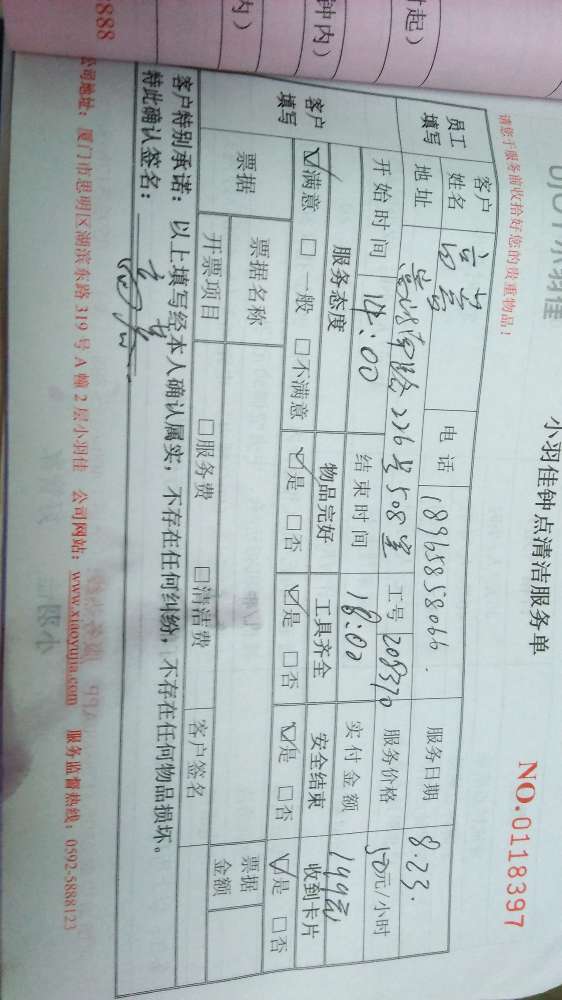 小羽佳钟点清洁服务单
NO.0118397
请您于服务前收拾好您的贵重物品！
员工填写 客户姓名 电话 18965858066. 服务日期 8.23.
地址 226号508室 工号 208370 服务价格 50元/小时
开始时间 14:00 结束时间 18:00 实付金额
客户填写 服务态度 物品完好 工具齐全 安全结束 收到卡片
☑满意 □一般 □不满意 ☑是 □否 ☑是 □否 ☑是 □否 ☑是 □否
票据 票据名称 客户签名 票据金额
开票项目 □服务费 □清洁费
客户特别承诺：以上填写经本人确认属实，不存在任何纠纷，不存在任何物品损坏。
特此确认签名：
公司地址：厦门市思明区湖滨东路 319 号 A 幢 2 层小羽佳 公司网站：www.xiaoyujia.com 服务监督热线：0592-5888123
时起）
钟内）
内）
888